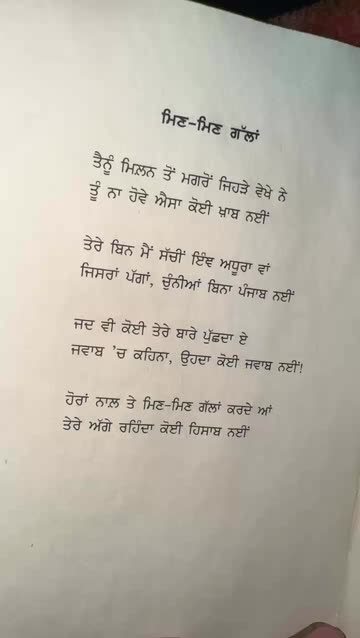 ਮਿਣ-ਮਿਣ ਗੱਲਾਂ
ਤੈਨੂੰ ਮਿਲਨ ਤੋਂ ਮਗਰੋਂ ਜਿਹੜੇ ਵੇਖੇ ਨੇ
ਤੂੰ ਨਾ ਹੋਵੇ ਐਸਾ ਕੋਈ ਖ਼ਾਬ ਨਈਂ
ਤੇਰੇ ਬਿਨ ਮੈਂ ਸੱਚੀਂ ਇੰਞ ਅਧੂਰਾ ਵਾਂ
ਜਿਸਰਾਂ ਪੱਗਾਂ, ਚੁੰਨੀਆਂ ਬਿਨਾ ਪੰਜਾਬ ਨਈਂ
ਜਦ ਵੀ ਕੋਈ ਤੇਰੇ ਬਾਰੇ ਪੁੱਛਦਾ ਏ
ਜਵਾਬ 'ਚ ਕਹਿਨਾ, ਉਹਦਾ ਕੋਈ ਜਵਾਬ ਨਈਂ!
ਹੋਰਾਂ ਨਾਲ਼ ਤੇ ਮਿਣ-ਮਿਣ ਗੱਲਾਂ ਕਰਦੇ ਆਂ
ਤੇਰੇ ਅੱਗੇ ਰਹਿੰਦਾ ਕੋਈ ਹਿਸਾਬ ਨਈਂ